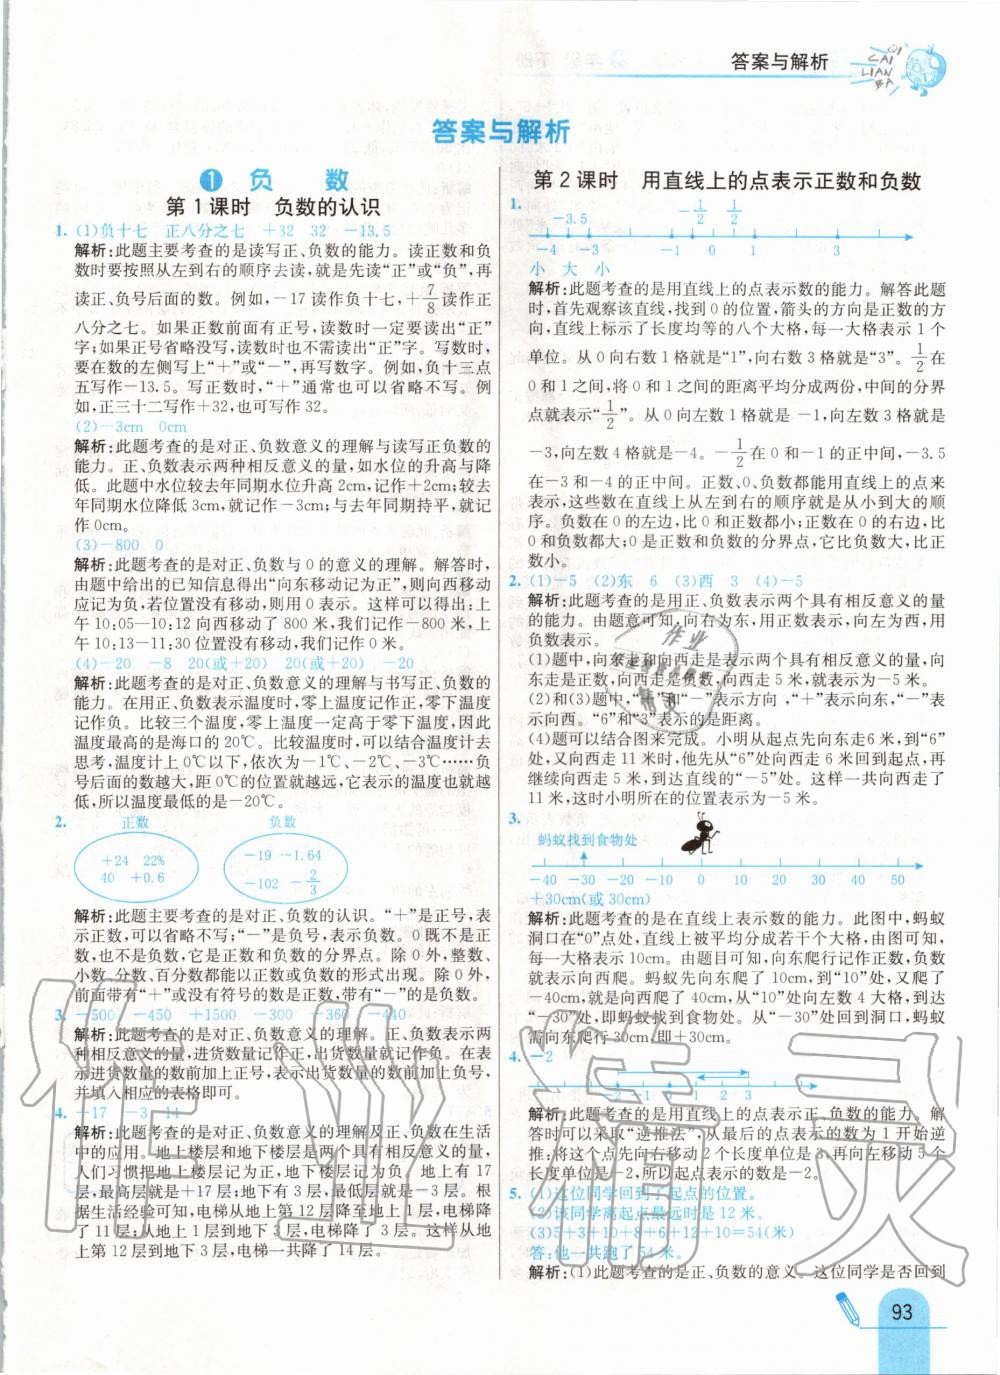 答案与解析
QI
CAI
LIAN
BA
答案与解析
1 负 数
第1课时 负数的认识
1. (1)负十七 正八分之七 +32 32 -13.5
解析:此题主要考查的是读写正、负数的能力。读正数和负
数时要按照从左到右的顺序去读,就是先读“正”或“负”,再
读正、负号后面的数。例如,-17读作负十七,+7/8读作正
八分之七。如果正数前面有正号,读数时一定要读出“正”
字;如果正号省略没写,读数时也不需读出“正”字。写数时,
要在数的左侧写上“+”或“-”,再写数字。例如,负十三点
五写作-13.5。写正数时,“+”通常也可以省略不写。例
如,正三十二写作+32,也可写作32。
(2)-3cm 0cm
解析:此题考查的是对正、负数意义的理解与读写正负数的
能力。正、负数表示两种相反意义的量,如水位的升高与降
低。此题中水位较去年同期水位升高2cm,记作+2cm;较去
年同期水位降低3cm,就记作-3cm;与去年同期持平,就记
作0cm。
(3)-800 0
解析:此题考查的是对正、负数与0的意义的理解。解答时,
由题中给出的已知信息可得“向东移动记为正”,则向西移动
应记为负,若位置没有移动,则用0表示。这样可以得出:上
午10:05—10:12向西移动了800米,我们记作-800米,上
午10:13—11:30位置没有移动,我们记作0米。
(4)-20 -8 20(或+20) 20(或+20) -20
解析:此题考查的是对正、负数意义的理解与书写正、负数的
能力。在用正、负数表示温度时,零上温度记作正,零下温度
记作负。比较三个温度,零上温度一定高于零下温度,因此
温度最高的是海口的20℃。比较温度时,可以结合温度计去
思考,温度计上0℃以下,依次为-1℃、-2℃、-3℃……负
号后面的数越大,距0℃的位置就越远,它表示的温度也就越
低,所以温度最低的是-20℃。
2. 正数 负数
+24 22% -19 -1.64
40 +0.6 -102 -2/3
解析:此题主要考查的是对正、负数的认识。“+”是正号,表
示正数,可以省略不写;“-”是负号,表示负数。0既不是正
数,也不是负数,它是正数和负数的分界点。除0外,整数、
小数、分数、百分数都能以正数或负数的形式出现。除0外,
前面带有“+”或没有符号的数是正数,带有“-”的是负数。
3. -500 -450 +1500 -300 -360 -440
解析:此题考查的是对正、负数意义的理解。正、负数表示两
种相反意义的量,进货数量记作正,出货数量就记作负。在表
示进货数量的数前加上正号,表示出货数量的数前加上负号,
并填入相应的表格即可。
4. -17 -3 14
解析:此题考查的是对正、负数意义的理解及正、负数在生活
中的应用。地上楼层和地下楼层是两个具有相反意义的量,
人们习惯把地上楼层记为正,地下楼层记为负。地上有17
层,最高层就是+17层;地下有3层,最低层就是-3层。根
据生活经验可知,电梯从地上第12层降至地上1层,电梯降
了11层;从地上1层到地下3层,电梯降了3层。这样从地
上第12层到地下3层,电梯一共降了14层。
第2课时 用直线上的点表示正数和负数
1.
-3.5 -1/2 1/2
-4 -3 -1 0 1 3
小 大 小
解析:此题考查的是用直线上的点表示数的能力。解答此题
时,首先观察该直线,找到0的位置,箭头的方向是正数的方
向,直线上标示了长度均等的八个大格,每一大格表示1个
单位。从0向右数1格就是“1”,向右数3格就是“3”。1/2在
0和1之间,将0和1之间的距离平均分成两份,中间的分界
点就表示“1/2”。从0向左数1格就是-1,向左数3格就是
-3,向左数4格就是-4。-1/2在0和-1的正中间,-3.5
在-3和-4的正中间。正数、0、负数都能用直线上的点来
表示,这些数在直线上从左到右的顺序就是从小到大的顺
序。负数在0的左边,比0和正数都小;正数在0的右边,比
0和负数都大;0是正数和负数的分界点,它比负数大,比正
数小。
2. (1)-5 (2)东 6 (3)西 3 (4)-5
解析:此题考查的是用正、负数表示两个具有相反意义的量
的能力。由题意可知,向右为东,用正数表示,向左为西,用
负数表示。
(1)题中,向东走和向西走是表示两个具有相反意义的量,向
东走是正数,向西走是负数,向西走5米,就表示为-5米。
(2)和(3)题中,“+”和“-”表示方向,“+”表示向东,“-”表
示向西。“6”和“3”表示的是距离。
(4)题可以结合图来完成。小明从起点先向东走6米,到“6”
处,又向西走11米时,他先从“6”处向西走6米回到起点,再
继续向西走5米,到达直线的“-5”处。这样一共向西走了
11米,这时小明所在的位置表示为-5米。
3.
蚂蚁找到食物处
-40 -30 -20 -10 0 10 20 30 40 50
+30cm(或30cm)
解析:此题考查的是在直线上表示数的能力。此图中,蚂蚁
洞口在“0”点处,直线上被平均分成若干个大格,由图可知,
每一大格表示10cm。由题目可知,向东爬行记作正数,负数
就表示向西爬。蚂蚁先向东爬了10cm,到“10”处,又爬了
-40cm,就是向西爬了40cm,从“10”处向左数4大格,到达
“-30”处,即蚂蚁找到食物处。从“-30”处回到洞口,蚂蚁
需向东爬行30cm,即+30cm。
4. -2
-3 -2 -1 0 1 2 3
解析:此题考查的是用直线上的点表示正、负数的能力。解
答时可以采取“逆推法”,从最后的点表示的数为1开始逆
推;将这个点先向右移动2个长度单位是3,再向左移动5个
长度单位是-2,所以起点表示的数是-2。
5. (1)这位同学回到了起点的位置。
(2)该同学离起点最远时是12米。
(3)5+3+10+8+6+12+10=54(米)
答:他一共跑了54米。
解析:(1)此题考查的是正、负数的意义。这位同学是否回到
93
作业精灵